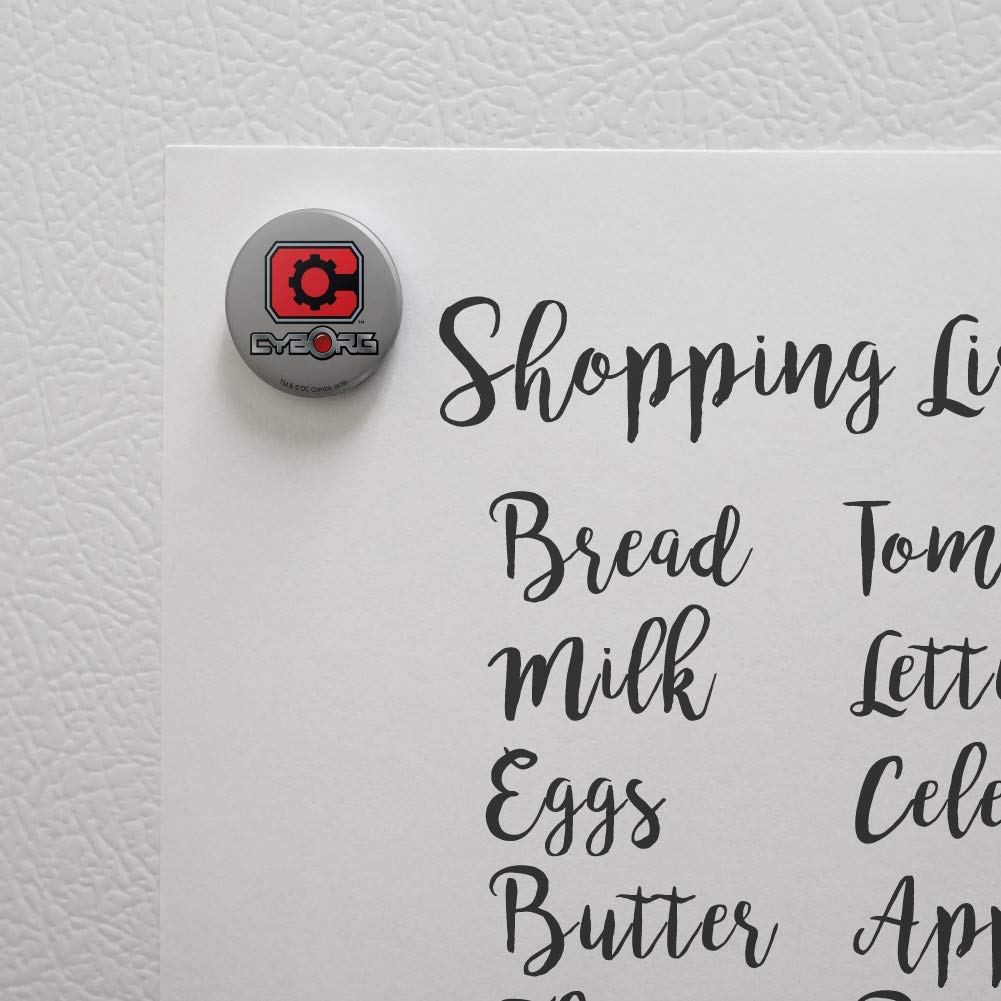 CYBORG
TM & © DC Comics. (s19)
Shopping Li
Bread Tom
Milk Lett
Eggs Cele
Butter App